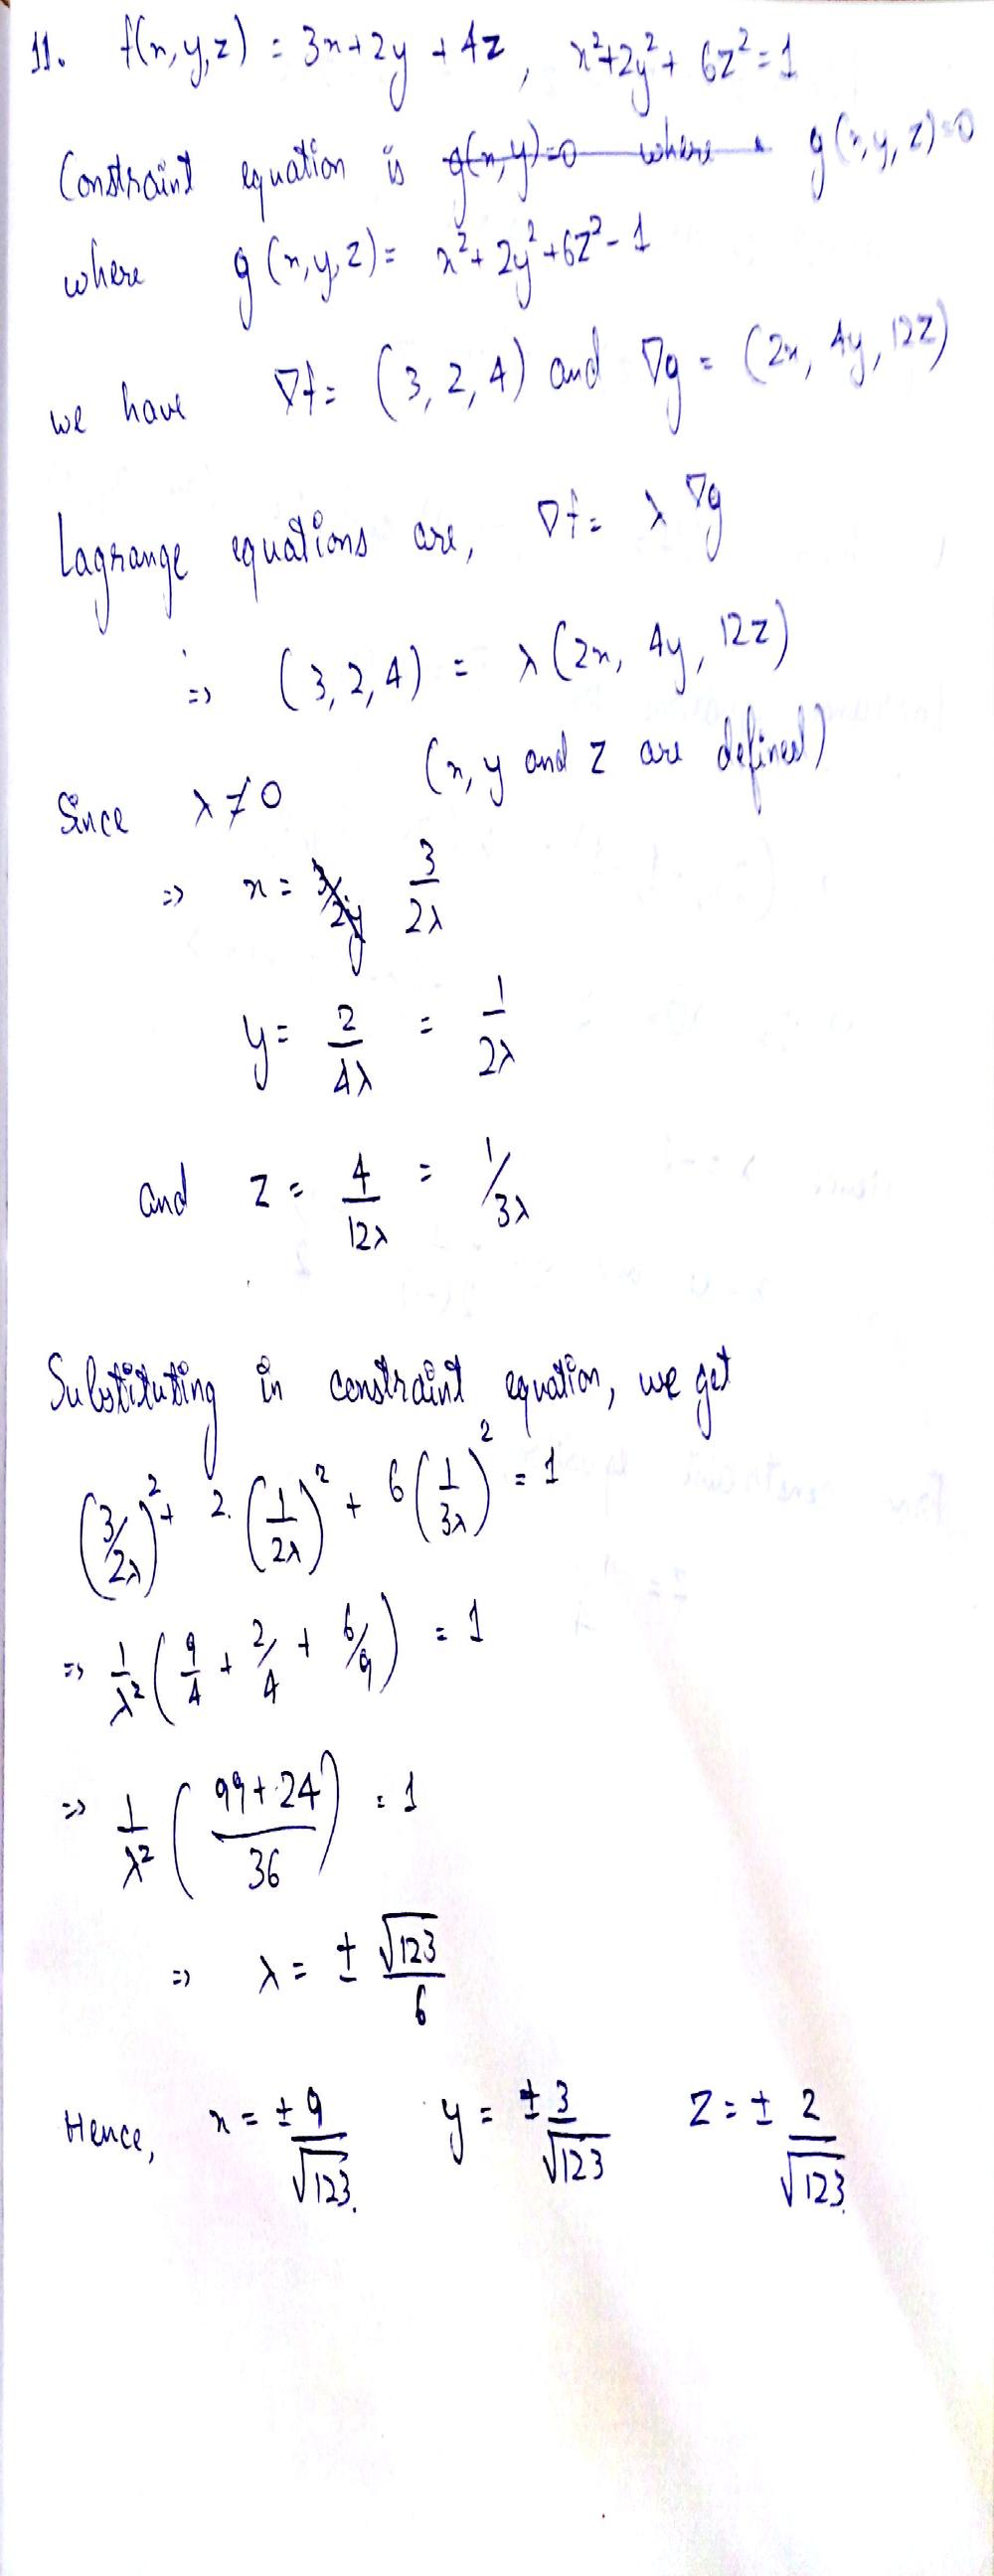 11. f(x,y,z) = 3x+2y + 4z, x²+2y²+ 6z²=1
Constraint equation is g(x,y)=0 where g(x,y,z)=0
where g(x,y,z)= x²+2y²+6z²-1
we have ∇f= (3,2,4) and ∇g = (2x, 4y, 12z)
Lagrange equations are, ∇f= λ ∇g
=> (3,2,4) = λ(2x, 4y, 12z)
Since λ≠0 (x, y and z are defined)
=> x = 3/2y 3/2λ
y= 2/4λ = 1/2λ
and z = 4/12λ = 1/3λ
Substituting in constraint equation, we get
(3/2λ)²+ 2.(1/2λ)² + 6(1/3λ)² = 1
=> 1/λ²(9/4 + 2/4 + 6/9) = 1
=> 1/λ² (99+24/36) = 1
=> λ= ± √123/6
Hence, x= ±9/√123. y= ±3/√123 z=± 2/√123.